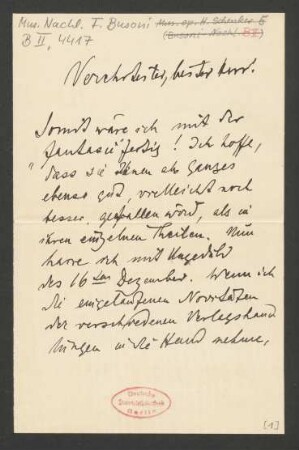 Mus. Nachl. F. Busoni Mus. ep. H. Schenker 5
B II, 4417 (Busoni-Nachl. B II)
Verehrtester, bester Herr.
Somit wäre ich mit der
"Fantasie" fertig! Ich hoffe,
dass sie Ihnen als Ganzes
ebenso gut, vielleicht noch
besser, gefallen wird, als in
ihren einzelnen Theilen. Nun
harre ich mit Ungeduld
des 16ten Dezember. Wenn ich
die eingelaufenen Novitäten
der verschiedenen Verlagshand
lungen in die Hand nehme,
Preußische
Staatsbibliothek
Berlin
[1]